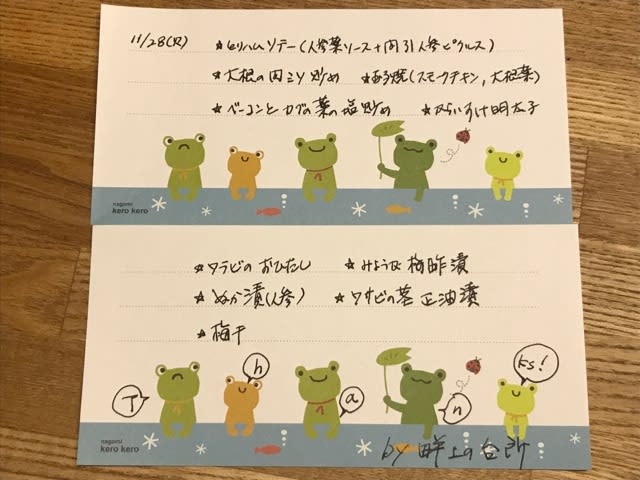 11/28(火) ★セリハムソテー(人参葉ソース+内引人参ピクルス)
★大根の肉ミソ炒め ★お焼(スモークチキン,大根葉)
★ベーコンとカブの葉の塩炒め ★明太子
nagomi
kero kero
★ワラビのおひたし ★みょうが梅酢漬
★ぬか漬(人参) ★ワサビの茎 正油漬
★梅干
T h a n ks!
nagomi
kero kero
by 畔上の台所